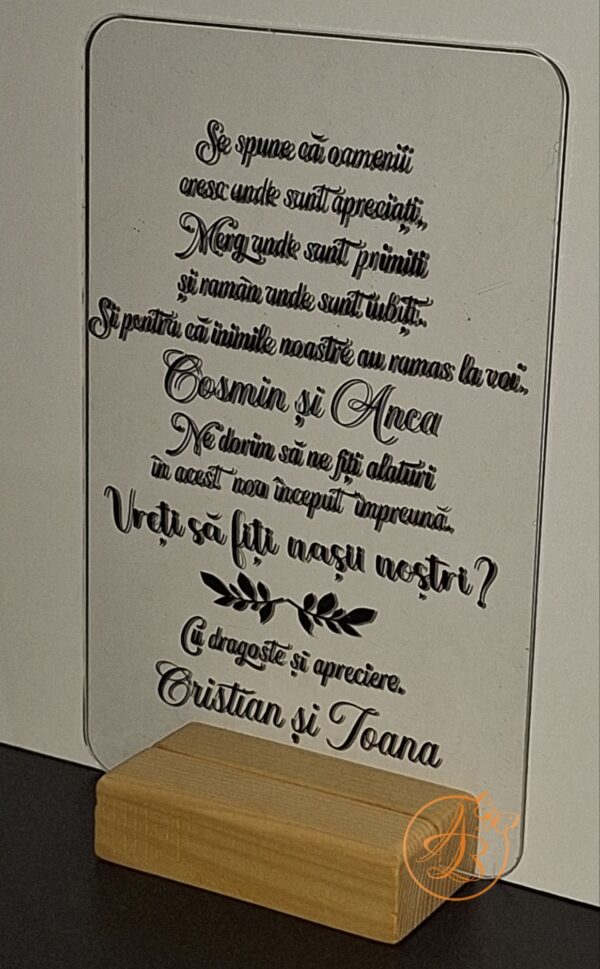 Se spune că oamenii
cresc unde sunt apreciați,
Merg unde sunt primiti
și ramân unde sunt iubiți.
Și pentru că inimile noastre au ramas la voi..
Cosmin și Anca
Ne dorim să ne fiți alaturi
în acest nou început împreună.
Vreți să fiți nașii noștri?
Cu dragoste și apreciere.
Cristian și Ioana